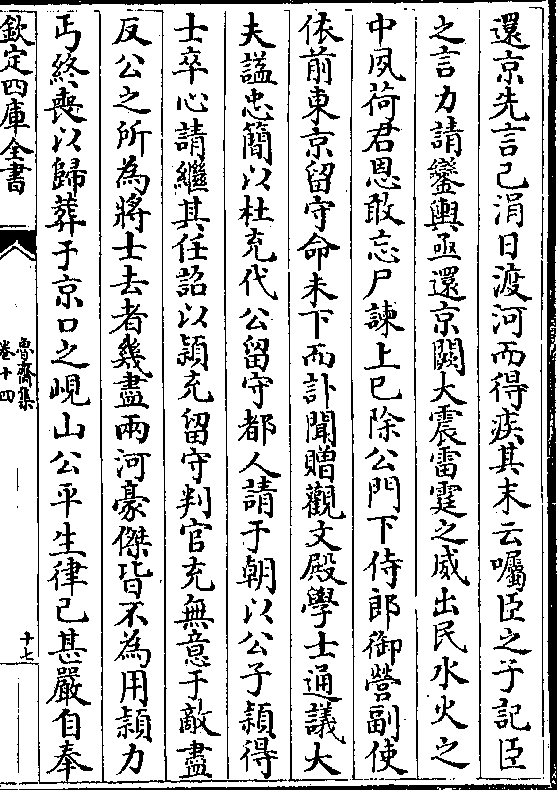 還京先言已涓日渡河而得疾其末云囑臣之子記臣
之言力請鑾輿亟還京闕大震雷霆之威出民水火之
中夙荷君恩敢忘尸諫上已除公門下侍郎御營副使
依前東京留守命未下而訃聞贈觀文殿學士通議大
夫諡忠簡以杜充代公留守都人請于朝以公子頴得
士卒心請繼其任詔以頴充留守判官充無意于敵盡
反公之所為將士去者幾盡兩河豪傑皆不為用頴力
丐終喪以歸葬于京口之峴山公平生律已甚嚴自奉
欽定四庫全書
魯齋集
卷十四
十七